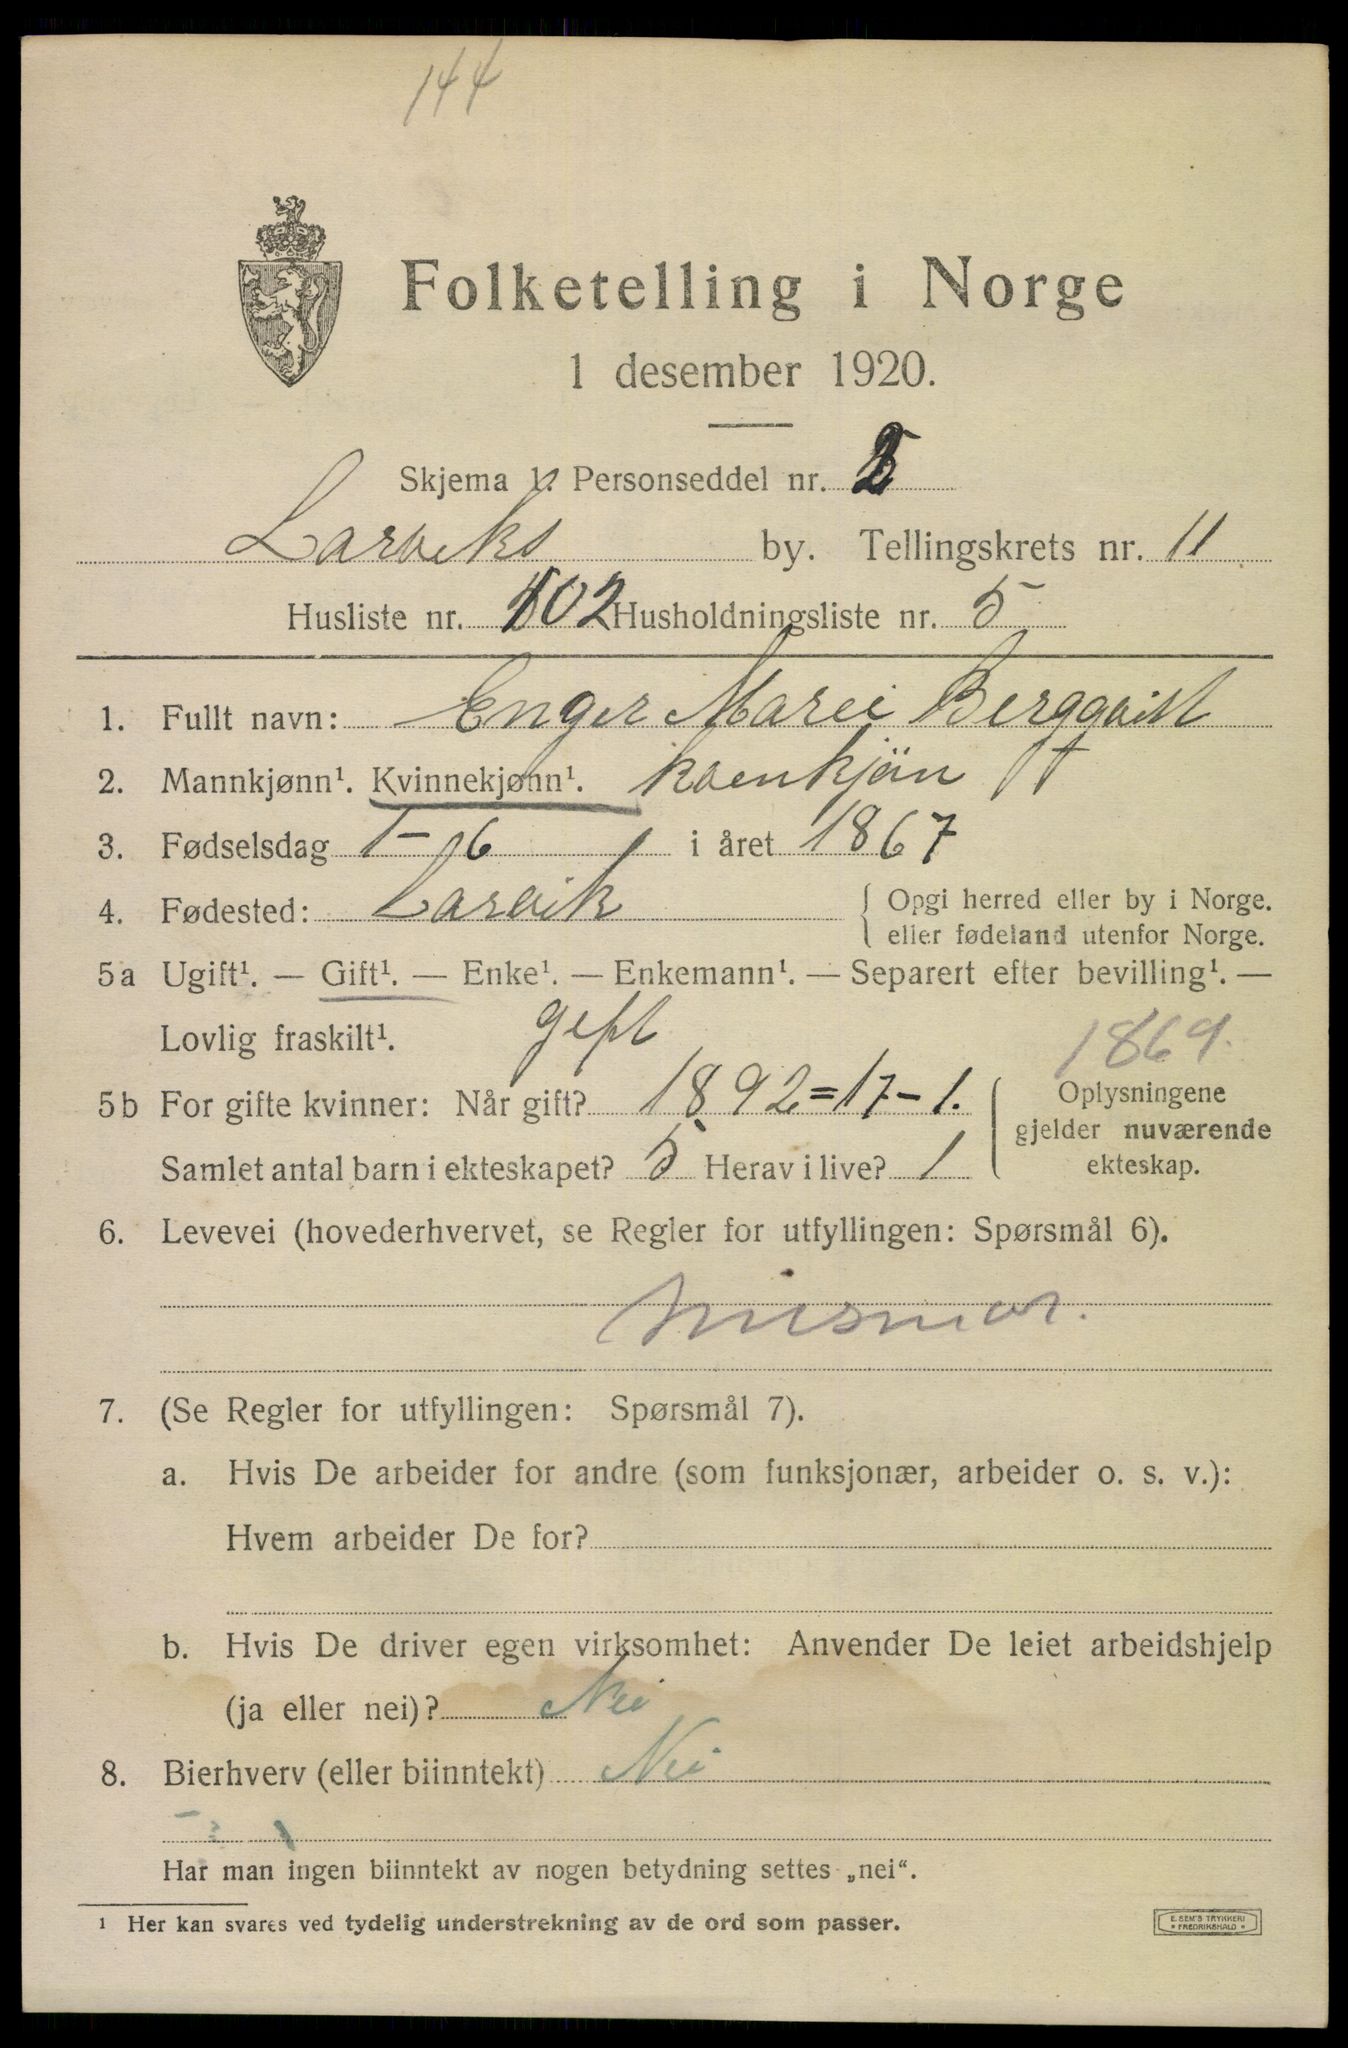 144
Folketelling i Norge
1 desember 1920.
Skjema 1. Personseddel nr. 2
Larviks by. Tellingskrets nr. 11
Husliste nr. 102 Husholdningsliste nr. 5
1. Fullt navn: Enger Marei Bergqvist
2. Mannkjønn¹. Kvinnekjønn¹. kvenkjön
3. Fødselsdag 1-6 i året 1867
4. Fødested: Larvik { Opgi herred eller by i Norge.
eller fødeland utenfor Norge.
5a Ugift¹. — Gift¹. — Enke¹. — Enkemann¹. — Separert efter bevilling¹. —
Lovlig fraskilt¹. gift 1869.
5b For gifte kvinner: Når gift? 1892=17-1. { Oplysningene
gjelder nuværende
Samlet antal barn i ekteskapet? 5 Herav i live? 1 ekteskap.
6. Levevei (hovederhvervet, se Regler for utfyllingen: Spørsmål 6).
husmor.
7. (Se Regler for utfyllingen: Spørsmål 7).
a. Hvis De arbeider for andre (som funksjonær, arbeider o. s. v.):
Hvem arbeider De for?
b. Hvis De driver egen virksomhet: Anvender De leiet arbeidshjelp
(ja eller nei)? Nei
8. Bierhverv (eller biinntekt) Nei
Har man ingen biinntekt av nogen betydning settes „nei“.
¹ Her kan svares ved tydelig understrekning av de ord som passer.
E. SEM'S TRYKKERI
FREDRIKSHALD